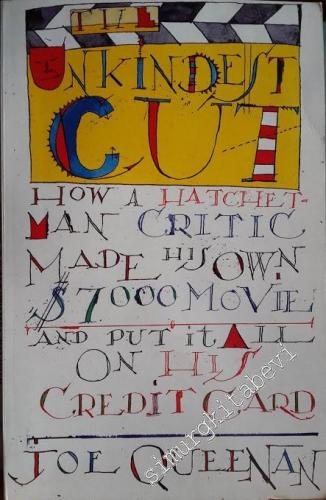 THE
UNKINDEST
CUT
HOW A HATCHET-
MAN CRITIC
MADE HIS OWN
$7000 MOVIE
AND PUT it ALL
ON HIS
CREDIT CARD
JOE QUEENAN
simurgkitabevi